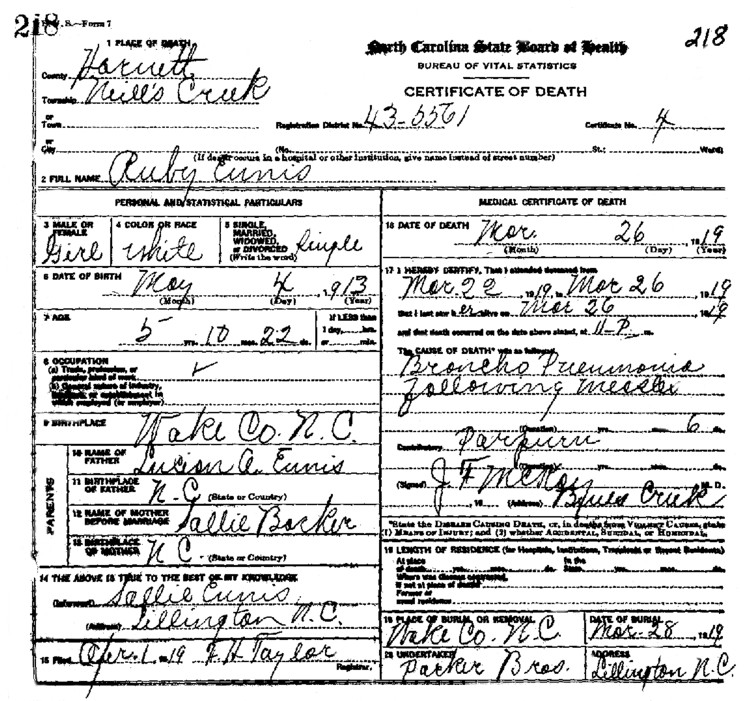 218
218
V. S.—Form 7
1 PLACE OF DEATH
County Harnett
Township Neill's Creek
or
Town
or
City
North Carolina State Board of Health
BUREAU OF VITAL STATISTICS
CERTIFICATE OF DEATH
Registration District No. 43-5561 Certificate No. 4
(No. St.; Ward)
(If death occurs in a hospital or other institution, give name instead of street number)
2 FULL NAME Ruby Ennis
PERSONAL AND STATISTICAL PARTICULARS
3 MALE OR FEMALE Girl
4 COLOR OR RACE White
5 SINGLE, MARRIED, WIDOWED, or DIVORCED (Write the word) Single
6 DATE OF BIRTH May 4, 913
(Month) (Day) (Year)
7 AGE 5 yrs. 10 mos. 22 ds.
If LESS than 1 day, hrs. or min.
8 OCCUPATION
(a) Trade, profession, or particular kind of work
(b) General nature of industry, business, or establishment in which employed (or employer)
9 BIRTHPLACE Wake Co. N.C.
PARENTS
10 NAME OF FATHER Lucion A. Ennis
11 BIRTHPLACE OF FATHER N-C (State or Country)
12 NAME OF MOTHER BEFORE MARRIAGE Sallie
13 BIRTHPLACE OF MOTHER N C (State or Country)
14 THE ABOVE IS TRUE TO THE BEST OF MY KNOWLEDGE
(Informant) Sallie Ennis
(Address) Lillington N.C.
15 Filed Apr. 1, 19 F. H. Taylor
Registrar.
MEDICAL CERTIFICATE OF DEATH
16 DATE OF DEATH Mar. 26, 1919
(Month) (Day) (Year)
17 I HEREBY CERTIFY, That I attended deceased from
Mar. 22 1919, to Mar 26, 1919
that I last saw her alive on Mar 26 1919
and that death occurred on the date above stated, at 11-P. m.
The CAUSE OF DEATH* was as follows:
Broncho Pneumonia
following
(Duration) yrs. mos. 6 ds.
Contributory
(Duration) yrs. mos. ds.
(Signed) J F McKay M. D.
, 19 (Address) Buies Creek
*State the DISEASE CAUSING DEATH, or, in deaths from VIOLENT CAUSES, state
(1) MEANS OF INJURY; and (2) whether ACCIDENTAL, SUICIDAL, or HOMICIDAL.
18 LENGTH OF RESIDENCE (for Hospitals, Institutions, Transients or Recent Residents)
At place of death yrs. mos. ds. In the State yrs. mos. ds.
Where was disease contracted, if not at place of death?
Former or usual residence
19 PLACE OF BURIAL OR REMOVAL Wake Co. N.C.
DATE OF BURIAL Mar-28, 1919
20 UNDERTAKER Parker Bros.
ADDRESS Lillington N.C.